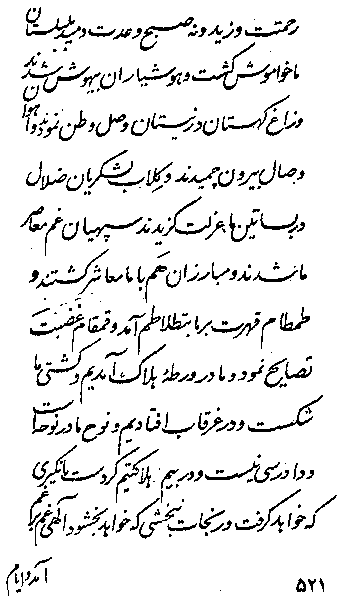 رحمتت وزید و نه صبح وعدت دمید بلبلستان
ما خواموش گشت و هوشیاران بیهوش شدند
و زاغ کهستان در نیستان وصل وطن نمودند و آهوان
وصال بیرون چمیدند و کلاب لشکریان ضلال
در بساتین ما عزلت گزیدند سپهیان غم معاصر
ما شدند و مبارزان هم با ما معاشر گشتند و
طمطام قهرت بر ما بتلاطم آمد و قمقام غضبت
تصایح نمود و ما در ورطهٔ هلاک آمدیم و کشتی ما
شکست و در غرقاب افتادیم و نوح ما در نوحه است
و دادرسی نیست و در بیم هلاکتیم گر دست ما نگیری
که خواهد گرفت و ر نجات نبخشی که خواهد بخشود الهی غم بر غم
آمد و ایام
۵۲۱